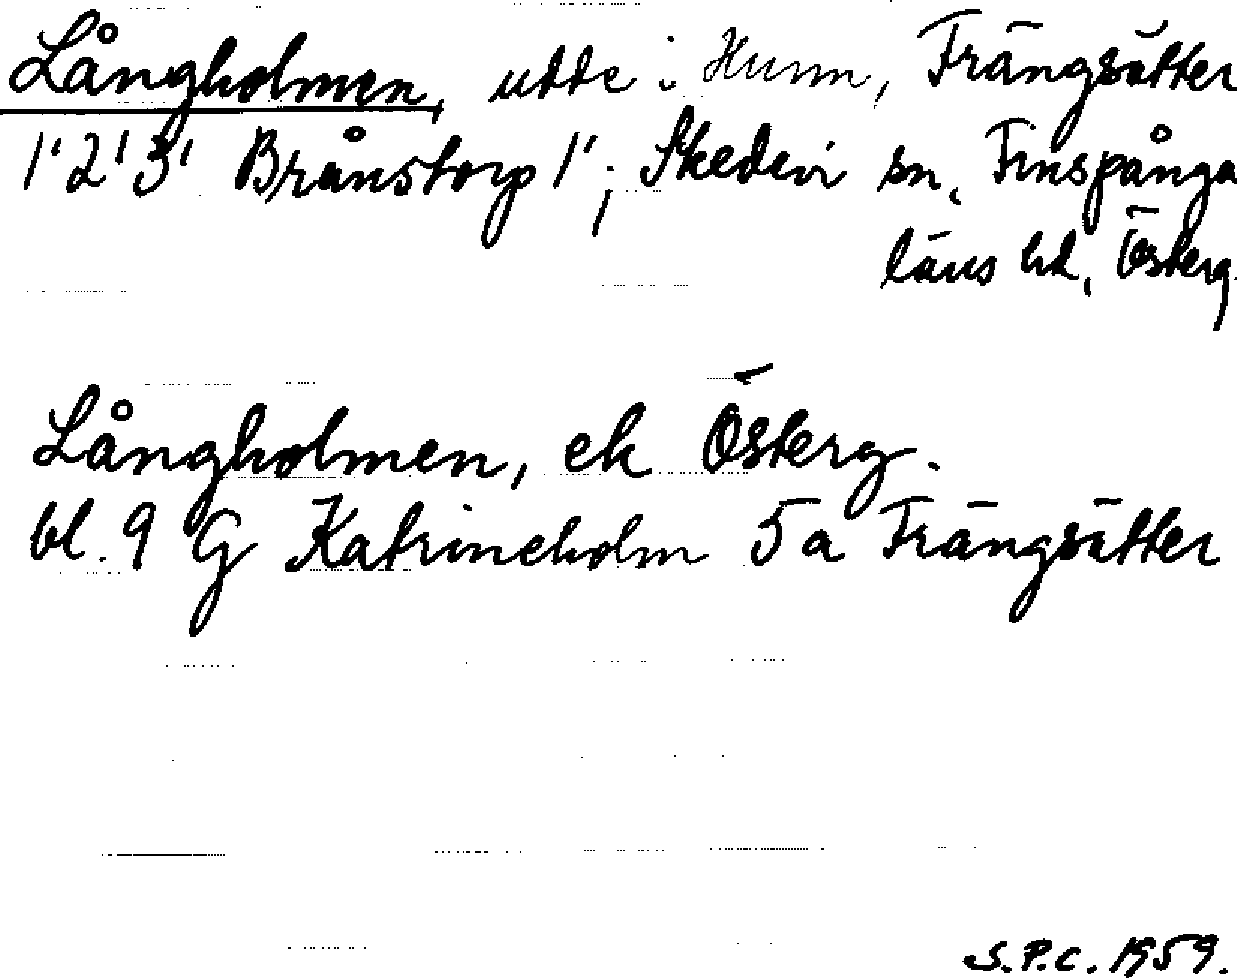 Långholmen, udde i Hunn, Trängsätter
1'2'3' Brånstorp 1'; Skedevi sn, Finspånga
läns hd, Österg.
Långholmen, ek Österg.
bl. 9 G Katrineholm 5a Trängsätter
S.P.C. 1959.